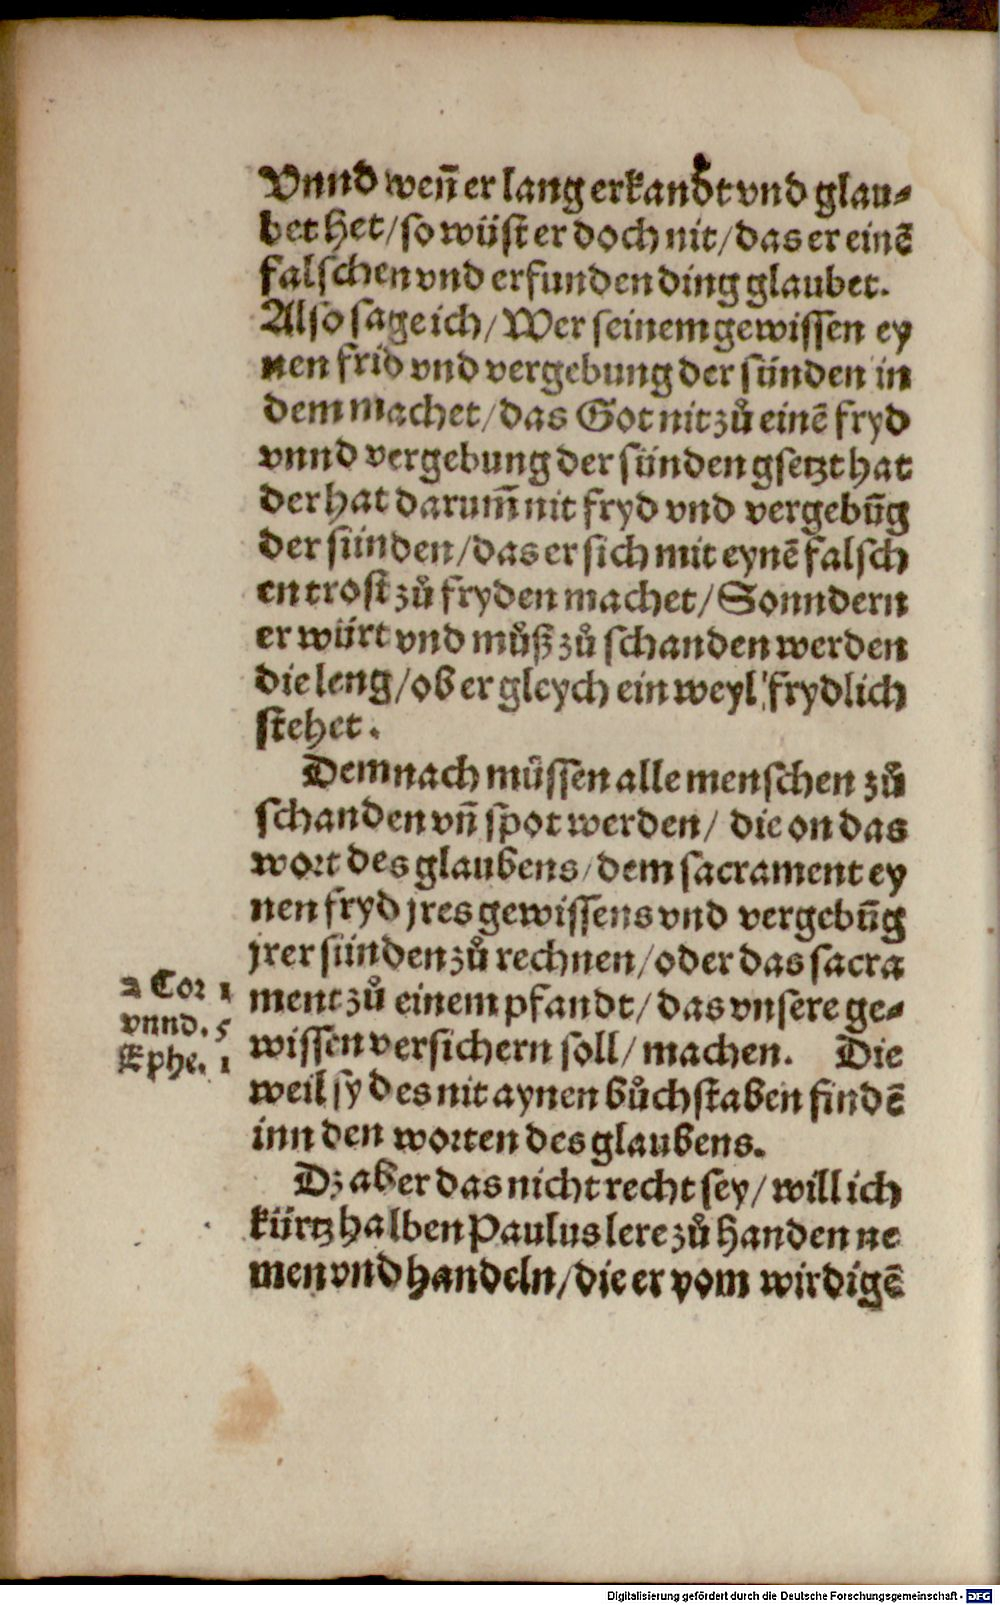 Vnnd weñ er lang erkandt vnd glau-
bet het/ so wüst er doch nit/ das er einē
falschen vnd erfunden ding glaubet.
Also sage ich/ Wer seinem gewissen ey
nen frid vnd vergebung der sünden in
dem machet/ das Got nit zů einē fryd
vnnd vergebung der sünden gsetzt hat
der hat darum̄ nit fryd vnd vergebūg
der sünden/ das er sich mit eynē falsch
en trost zů fryden machet/ Sonndern
er würt vnd můß zů schanden werden
die leng/ ob er gleych ein weyl frydlich
stehet.
Demnach müssen alle menschen zů
schanden vñ spot werden/ die on das
wort des glaubens/ dem sacrament ey
nen fryd jres gewissens vnd vergebūg
jrer sünden zů rechnen/ oder das sacra
ment zů einem pfandt/ das vnsere ge-
wissen versichern soll/ machen. Die
weil sy des nit aynen bůchstaben findē
inn den worten des glaubens.
Dz aber das nicht recht sey/ will ich
kürtz halben Paulus lere zů handen ne
men vnd handeln/ die er vom wirdigē
2 Cor 1
vnnd. 5
Ephe. 1
Digitalisierung gefördert durch die Deutsche Forschungsgemeinschaft - DFG